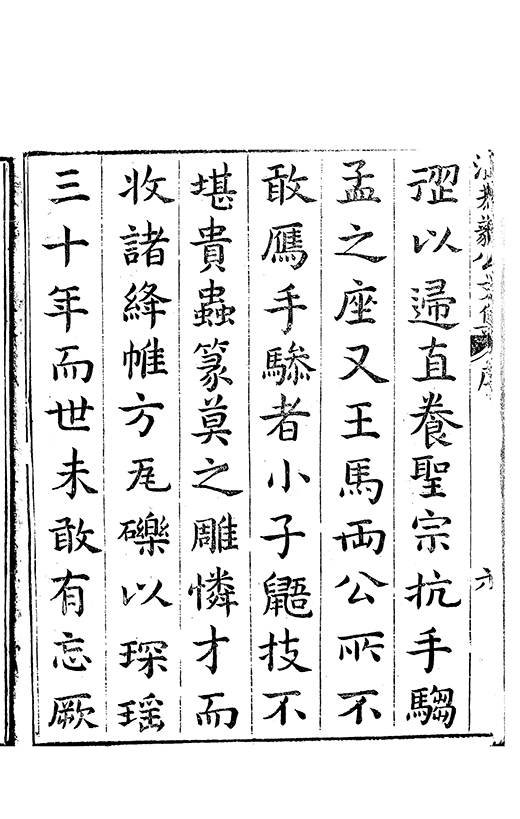 溫恭毅公文集 序 六
涩以歸直養聖宗抗手騶
孟之座又王馬兩公所不
敢鴈手驂者小子鼯技不
堪貴蟲篆莫之雕憐才而
收諸絳帷方瓦礫以琛瑶
三十年而世未敢有忘厥